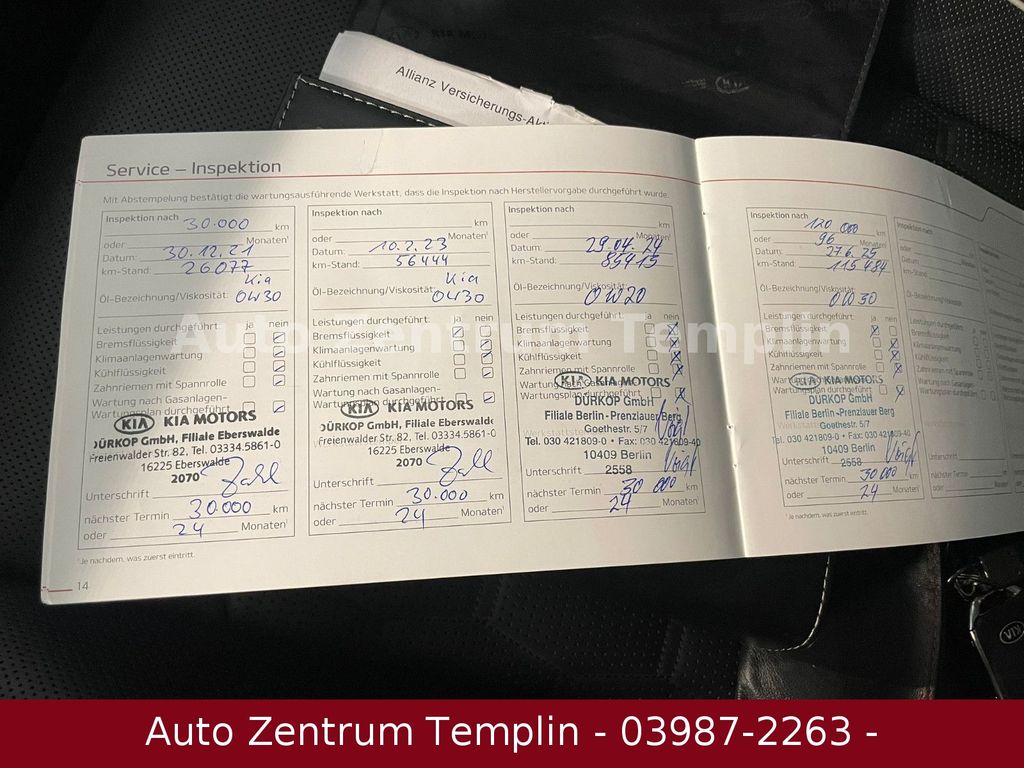 Allianz Versicherungs-Akt
Service – Inspektion
Mit Abstempelung bestätigt die wartungsausführende Werkstatt, dass die Inspektion nach Herstellervorgabe durchgeführt wurde.
Inspektion nach 30.000 km
oder Monaten¹
Datum: 30.12.21
km-Stand: 26077
Kia
Öl-Bezeichnung/Viskosität: 0W30
Leistungen durchgeführt: ja nein
Bremsflüssigkeit
Klimaanlagenwartung
Kühlflüssigkeit
Zahnriemen mit Spannrolle
Wartung nach Gasanlagen-
Wartungsplan durchgeführt
KIA KIA MOTORS
DÜRKOP GmbH, Filiale Eberswalde
Freienwalder Str. 82, Tel. 03334.5861-0
16225 Eberswalde
2070
Unterschrift
nächster Termin 30.000 km
oder 24 Monaten¹
Inspektion nach km
oder Monaten¹
Datum: 10.2.23
km-Stand: 56444
Kia
Öl-Bezeichnung/Viskosität: 0W30
Leistungen durchgeführt: ja nein
Bremsflüssigkeit
Klimaanlagenwartung
Kühlflüssigkeit
Zahnriemen mit Spannrolle
Wartung nach Gasanlagen-
Wartungsplan durchgeführt
KIA KIA MOTORS
DÜRKOP GmbH, Filiale Eberswalde
Freienwalder Str. 82, Tel. 03334.5861-0
16225 Eberswalde
2070
Unterschrift
nächster Termin 30.000 km
oder 24 Monaten¹
Inspektion nach km
oder Monaten¹
Datum: 29.04.24
km-Stand: 85415
Öl-Bezeichnung/Viskosität: 0W20
Leistungen durchgeführt: ja nein
Bremsflüssigkeit
Klimaanlagenwartung
Kühlflüssigkeit
Zahnriemen mit Spannrolle
Wartung nach Gasanlagen-
Wartungsplan durchgeführt
KIA KIA MOTORS
DÜRKOP GmbH
Filiale Berlin-Prenzlauer Berg
Goethestr. 5/7
Tel. 030 421809-0 • Fax: 030 421809-40
10409 Berlin
2558
Unterschrift
nächster Termin 30 000 km
oder 24 Monaten¹
¹Je nachdem, was zuerst eintritt.
14
Inspektion nach 120 000 km
oder 96 Monaten¹
Datum: 27.6.25
km-Stand: 115484
Öl-Bezeichnung/Viskosität: 0W30
Leistungen durchgeführt: ja nein
Bremsflüssigkeit
Klimaanlagenwartung
Kühlflüssigkeit
Zahnriemen mit Spannrolle
Wartung nach Gasanlagen-
Wartungsplan durchgeführt
KIA KIA MOTORS
DÜRKOP GmbH
Filiale Berlin-Prenzlauer Berg
Goethestr. 5/7
Tel. 030 421809-0 • Fax: 030 421809-40
10409 Berlin
2558
Unterschrift
nächster Termin 30 000 km
oder 24 Monaten¹
¹Je nachdem, was zuerst eintritt.
Inspektion nach
oder
Datum:
km-Stand:
Öl-Bezeichnung/
Leistungen durchgeführt
Bremsflüssigkeit
Klimaanlagenwartung
Kühlflüssigkeit
Zahnriemen mit Spannrolle
Wartung nach Gasanlagen-
Wartungsplan durchgeführt
Unterschrift
nächster Termin
oder
KIA
Auto Zentrum Templin
Auto Zentrum Templin - 03987-2263 -